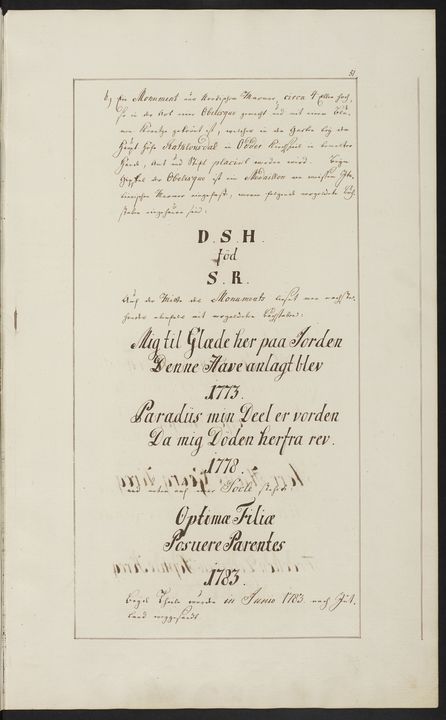 51
b) Ein Monument aus Nordischen Marmor, circa 4 Ellen hoch,
so in der Art einer Obelisque gemacht und mit einer
gekrönt ist, welches in der Garten bey dem
Haupt Hofe Rathlousdal in Odder Kirchspiel in
Harde, Amt und Stift placirt worden wird.
der Obelisque ist ein Medaillon von weissen
Marmor eingefasst, worin folgende vergoldete Buch-
staben eingehauen sind:
D. S. H.
föd
S. R.
Auf der Mitte des Monuments lieset man nachste-
hendes ebenfals mit vergoldeten Buchstaben:
Mig til Glæde her paa Jorden
Denne Have anlagt blev
1773.
Paradiis min Deel er vorden
Da mig Döden herfra rev.
1778.
und unten auf einer Socle stehet:
Optimæ Filiæ
Posuere Parentes
1783.
wurde in Junio 1783. nach Jüt-
land weggesandt